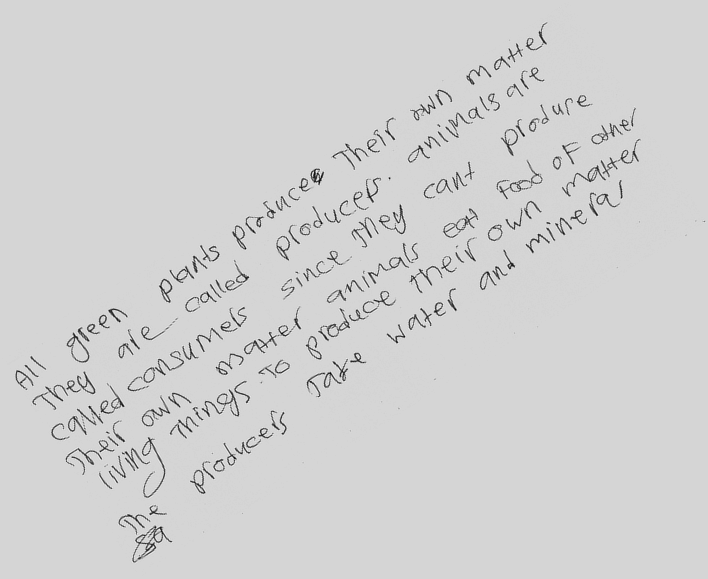 All green plants produce Their own matter
They are called producers. animals are
called consumers since They cant produre
Their own matter animals eat Food of other
living Things. To produce Their own matter
The producers Take water and mineral